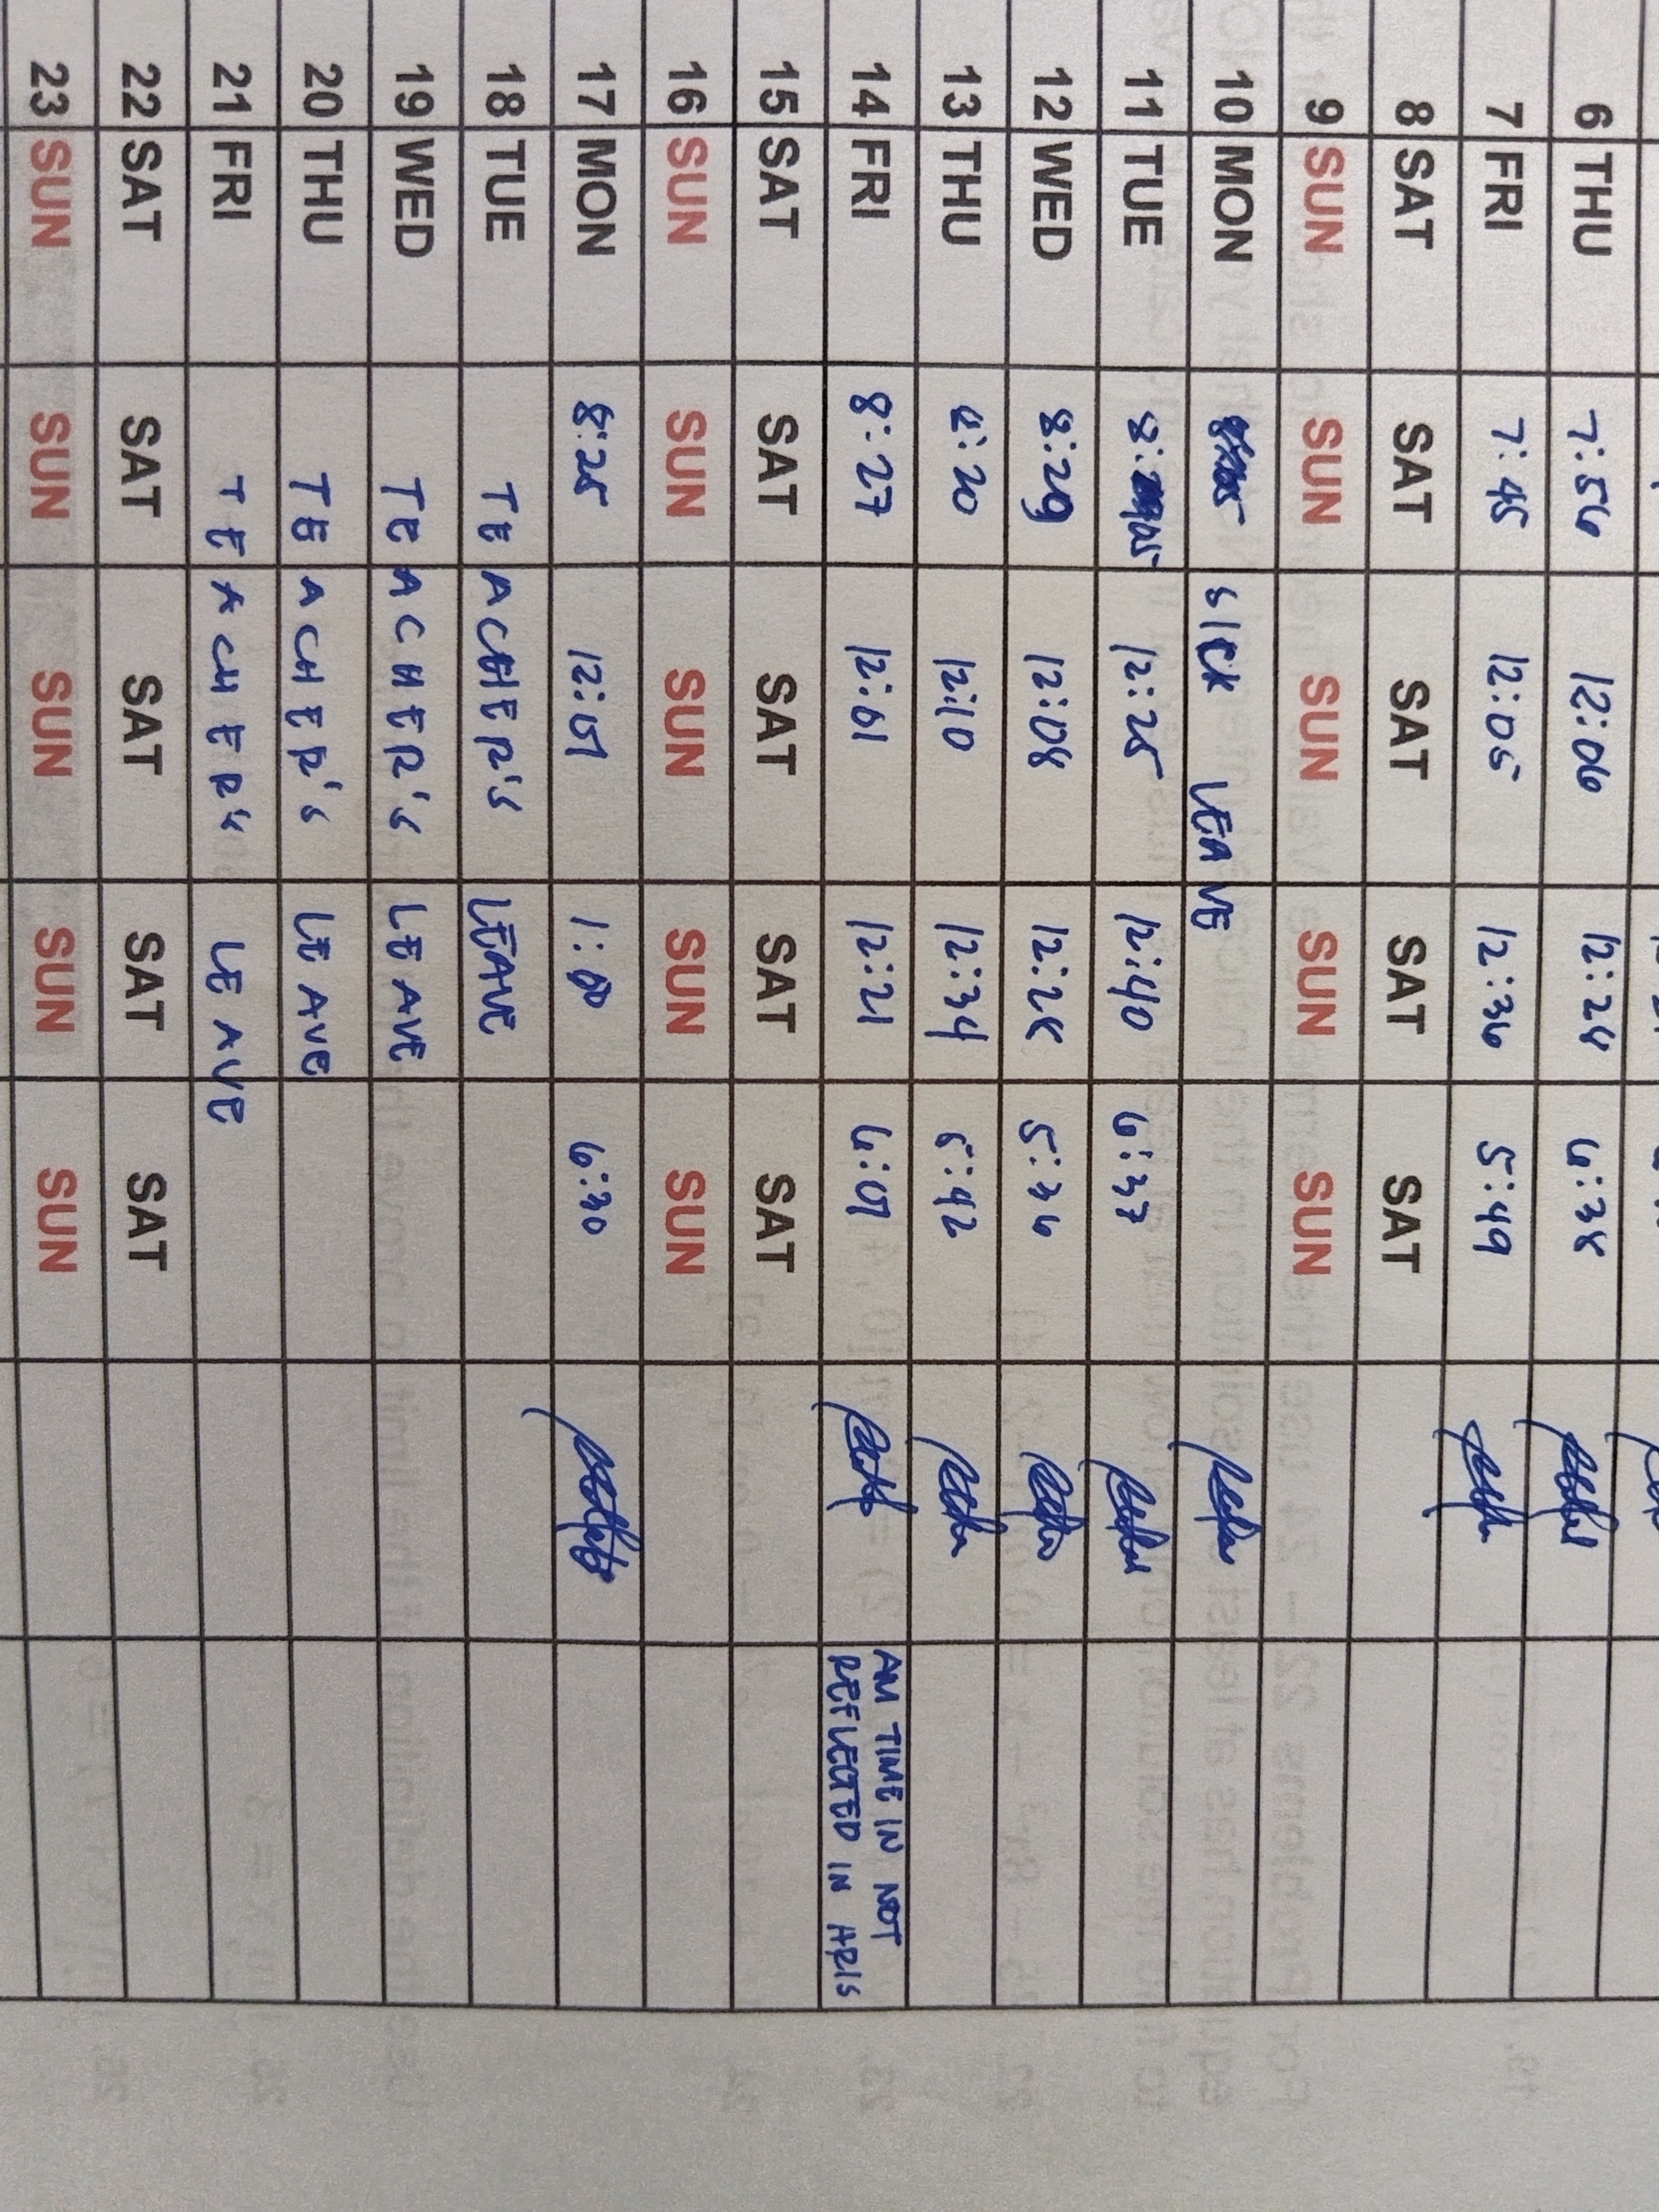 6 THU 7:56 12:06 12:24 6:38
7 FRI 7:45 12:05 12:36 5:49
8 SAT SAT SAT SAT SAT
9 SUN SUN SUN SUN SUN
10 MON SICK LEAVE
11 TUE 12:25 12:40 6:37
12 WED 8:29 12:08 12:28 5:36
13 THU 8:20 12:10 12:34 5:42
14 FRI 8:27 12:01 12:21 6:07 AM TIME IN NOT
REFLECTED IN HRIS
15 SAT SAT SAT SAT SAT
16 SUN SUN SUN SUN SUN
17 MON 8:25 12:07 1:00 6:30
18 TUE TEACHER'S LEAVE
19 WED TEACHER'S LEAVE
20 THU TEACHER'S LEAVE
21 FRI TEACHER'S LEAVE
22 SAT SAT SAT SAT SAT
23 SUN SUN SUN SUN SUN